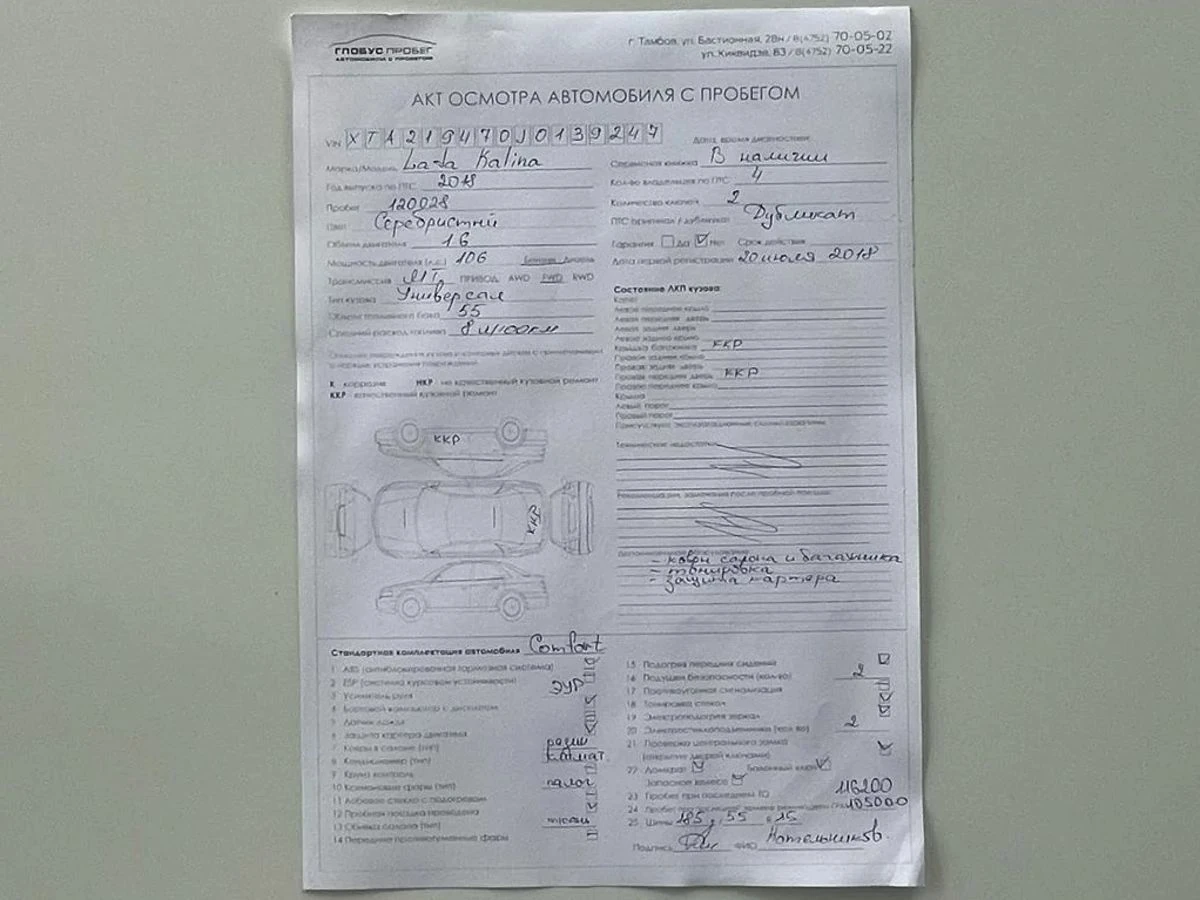 ГЛОБУС ПРОБЕГ
АВТОМОБИЛИ С ПРОБЕГОМ
г. Тамбов, ул. Бастионная, 28н / 8(4752) 70-05-02
ул. Киквидзе, 83 / 8(4752) 70-05-22
АКТ ОСМОТРА АВТОМОБИЛЯ С ПРОБЕГОМ
VIN XTA219470J0139247
Марка/Модель Lada Kalina
Год выпуска по ПТС 2018
Пробег 120028
Цвет Серебристый
Объем двигателя 1.6
Мощность двигателя (л.с.) 106 Бензин Дизель
Трансмиссия МТ ПРИВОД AWD FWD RWD
Тип кузова Универсал
Объем топливного бака 55
Средний расход топлива 8 л/100км
К - коррозия НКР - не качественный кузовной ремонт
ККР - качественный кузовной ремонт
ККР
ККР
Дата, время диагностики
Сервисная книжка В наличии
Кол-во владельцев по ПТС 4
Количество ключей 2
ПТС оригинал / дубликат Дубликат
Гарантия Да Нет Срок действия
Дата первой регистрации 20 июля 2018
Состояние ЛКП кузова
Капот
Левое переднее крыло
Левая передняя дверь
Левая задняя дверь
Левое заднее крыло
Крышка багажника ККР
Правое заднее крыло
Правая задняя дверь
Правая передняя дверь ККР
Правое переднее крыло
Крыша
Левый порог
Правый порог
Технические недостатки
Рекомендации, замечания после пробной поездки
Дополнительное оборудование
- ковры салона и багажника
- тонировка
- защита картера
Стандартная комплектация автомобиля Comfort
1 ABS (антиблокировочная тормозная система)
2 ESP (система курсовой устойчивости)
3 Усилитель руля ЭУР
4 Бортовой компьютер с дисплеем
5 Датчик дождя
6 Защита картера двигателя
7 Ковры в салоне (тип) резин
8 Кондиционер (тип) климат
9 Круиз контроль
10 Ксеноновые фары (тип) галог
11 Лобовое стекло с подогревом
12 Пробная поездка проведена
13 Обивка салона (тип) ткань
14 Передние противотуманные фары
15 Подогрев передних сидений
16 Подушки безопасности (кол-во) 2
17 Противоугонная сигнализация
18 Тонировка стекол
19 Электроподогрев зеркал
20 Электростеклоподъемники (кол-во) 2
21 Проверка центрального замка
(открытие дверей ключами)
22 Домкрат Балонный ключ
Запасное колесо
23 Пробег при последнем ТО 116200
24 105000
25 Шины 185 / 55 R 15
Подпись ФИО Котельников